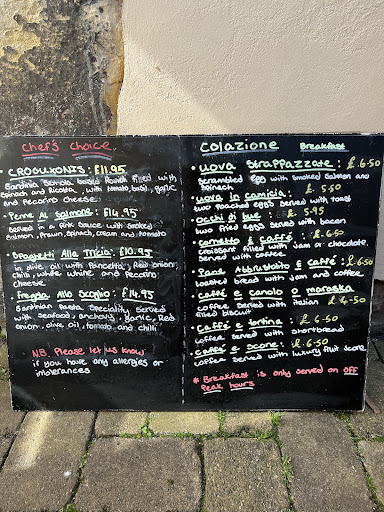 Chef's Choice
• CROQUXONIS: £11.95
Sardinia Semola bread Ravioli filled with
Spinach and Ricotta, with tomato, basil, garlic
and Pecorino Cheese.
• Penne Al Salmone: £14.95
Served in a Pink Sauce with Smoked
Salmon, Prawn, Spinach, Cream and tomato
• Spaghetti Alla Tricia: £10.95
in olive oil with Pancetta, Red onion,
Chilli, white wine and Pecorino
Cheese
• Fregola Allo Scoglio: £14.95
Sardinian Pasta Speciality Served
with Seafood, anchovy, Garlic, Red
onion, olive oil, tomato, and chilli
N.B. Please let us know
if you have any allergies or
intolerances
Colazione Breakfast
• Uova Strappazzate: £6.50
Scrambled egg with Smoked Salmon and
Spinach
• Uova in Camicia: £5.50
two Poached eggs Served with toast
• Occhi di bue: £5.95
two fried eggs Served with bacon
• Cornetto E Caffé: £6.50
Croissant filled with Jam or Chocolate.
Served with Coffee.
• Pane Abbrustolito E Caffé: £6.50
toasted bread with Jam and Coffee
• Caffé e canolo o
Coffee Served with italian £6.50
filled biscuit
• Caffé e tortine: £6.50
Coffee Served with Shortbread
• Caffé e Scone: £6.50
Coffee Served with luxury fruit Scone
* Breakfast is only served on OFF
Peak hours